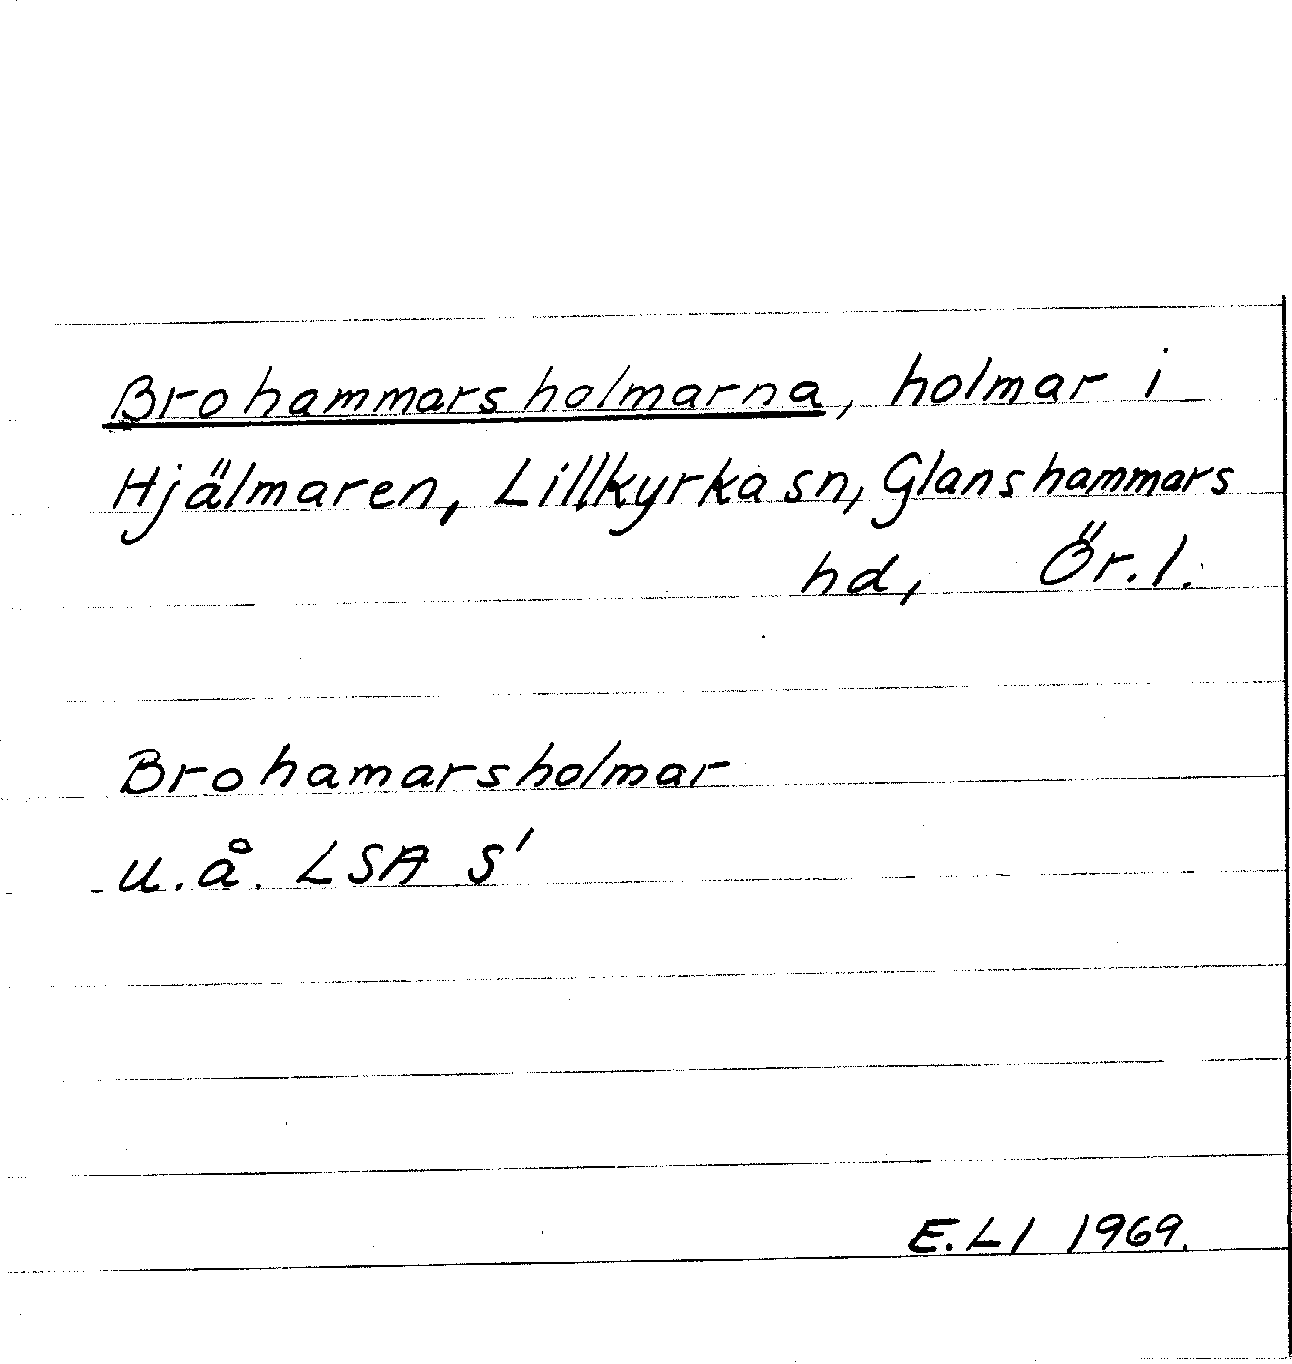 Brohammarsholmarna, holmar i
Hjälmaren, Lillkyrka sn, Glanshammars
hd, Ör. l.
Brohamarsholmar
u.å. LSA S'
E.Ll 1969.